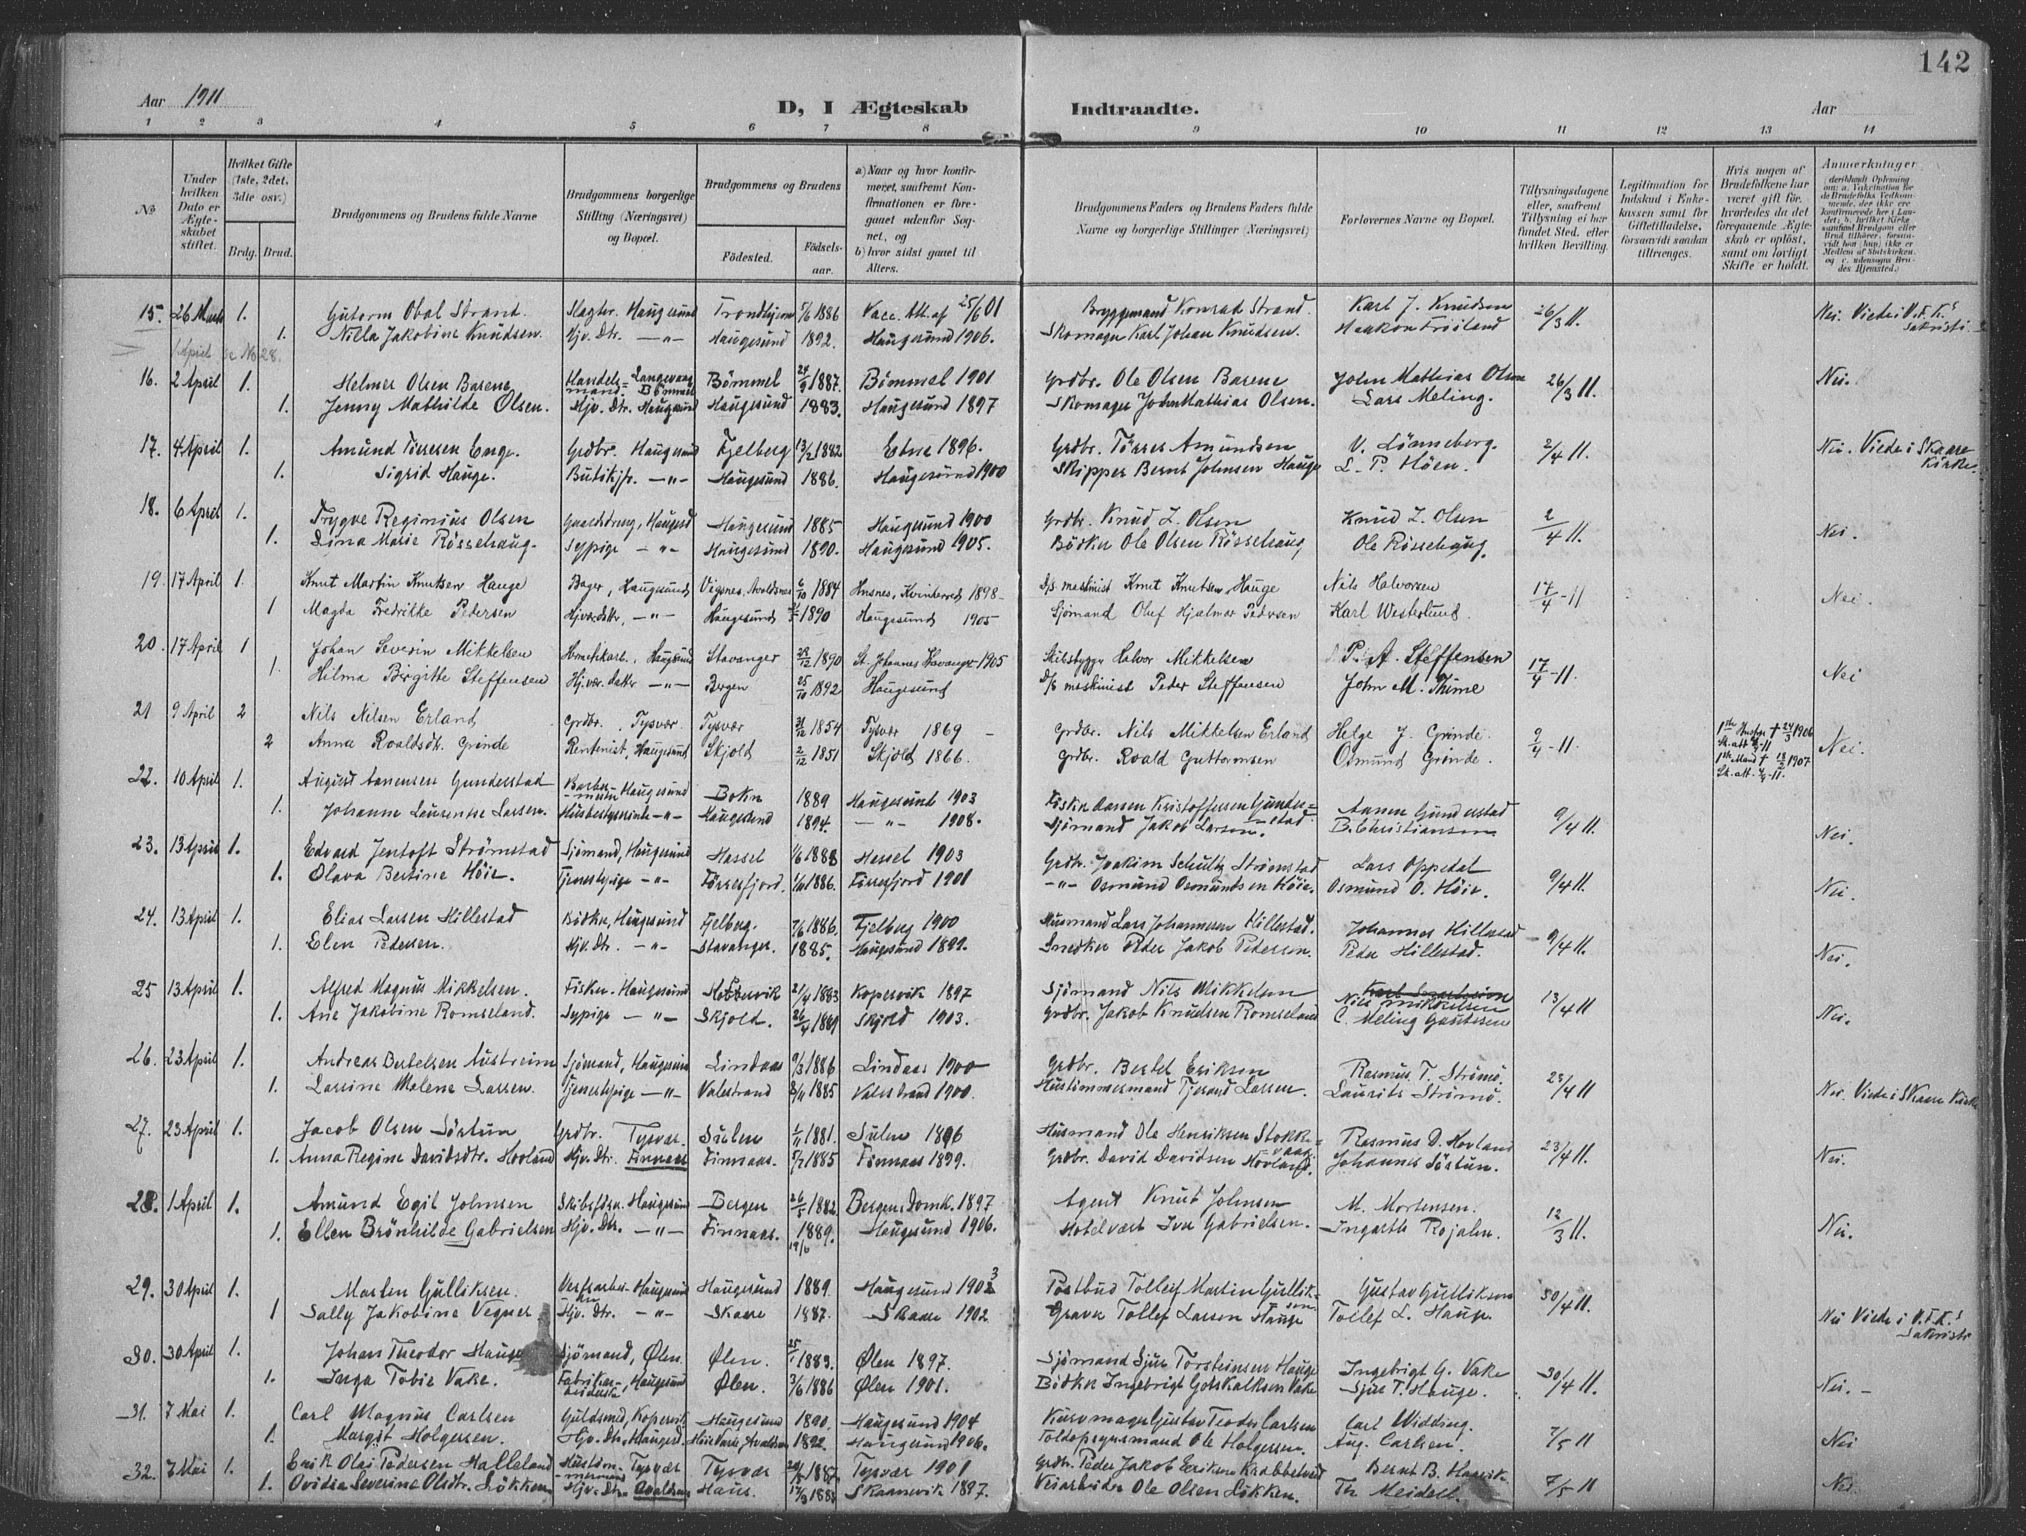 142
Aar 1911
D, I Ægteskab Indtraadte.
Aar
1 2 3 4 5 6 7 8 9 10 11 12 13 14
No
Under hvilken Dato er Ægteskabet stiftet.
Hvilket Gifte (1ste, 2det, 3die osv.)
Brdg. Brud.
Brudgommens og Brudens fulde Navne
Brudgommens borgerlige Stilling (Næringsvei) og Bopæl.
Brudgommens og Brudens
Fødested.
Fødselsaar.
a) Naar og hvor konfirmeret, saafremt Konfirmationen er foregaaet udenfor Sognet, og
b) hvor sidst gaaet til Alters.
Brudgommens Faders og Brudens Faders fulde Navne og borgerlige Stillinger (Næringsvei)
Forlovernes Navne og Bopæl.
Tillysningsdagene eller, saafremt Tillysning ei har fundet Sted, efter hvilken Bevilling.
Legitimation for Indskud i Enkekassen samt for Giftetilladelse, forsaavidt saadan tiltrænges.
Hvis nogen af Brudefolkene har været gift før, hvorledes da det foregaaende Ægteskab er opløst, samt om lovligt Skifte er holdt.
Anmærkninger
15. 26 Marts 1. Gutorm Obal Strand. Slagter. Haugesund Trondhjem 5/6 1886 Vacc. Att. af 25/6 01 Bryggemand Konrad Strand. Karl J. Knudsen 26/3 11. Nei. Viede i V.F.K.s Sakristi.
1. Nilla Jakobine Knudsen. Hjv. Dtr. —"— Haugesund 1892. Haugesund 1906. Skomager Karl Johan Knudsen. Haakon Frøiland
1 April se No 28.
16. 2 April 1. Helmer Olsen Barene Handelsmand. Langevaag Bømmel Bømmel 24/9 1887. Bømmel 1901 Grdbr. Ole Olsen Barene John Mathias Olsen 26/3 11. Nei.
1. Jenny Mathilde Olsen. Hjv. Dtr. Haugesund Haugesund 1883. Haugesund 1897 Skomager John Mathias Olsen. Lars Meling.
17. 4 April 1. Amund Tørresen Enge. Grdbr. Haugesund Fjelberg 13/2 1882 Etne 1896. Grdbr. Tørres Amundsen V. Lønneberg. 2/4 11. Nei. Viede i Skaare Kirke.
1. Sigrid Hauge. Butikjfr. —"— Haugesund 1886. Haugesund 1900 Skipper Bernt Johnsen Hauge L. P. Høen.
18. 6 April 1. Trygve Regimius Olsen Haugesund 1885 Haugesund 1900 Grdbr. Knud L. Olsen Knud L. Olsen 2/4 11. Nei.
1. Lina Marie Røssehaug. Sypige —"— Haugesund 1890. Haugesund 1905. Bødker Ole Olsen Røssehaug Ole Røssehaug.
19. 17 April 1. Knut Martin Knutsen Hauge Bager, Haugesund Vigsnes, Avaldsnes 6/10 1884 Husnes, Kvinherred 1898 D/s maskinist Knut Knutsen Hauge Nils Halvorsen 17/4-11 Nei.
1 Magda Fredrikke Pedersen Hjv.dtr., —"— Haugesund 1890 Haugesund 1905 Sjømand Oluf Hjalmar Pedersen Karl Westerlund
20. 17 April 1 Johan Severin Mikkelsen Hermetikarb., Haugesund Stavanger 1890 St. Johannes Stavanger 1905 Skibsbygger Halvor Mikkelsen P. A. Steffensen 17/4-11. Nei
1. Hilma Birgitte Steffensen Hjv. datter —"— Bergen 25/10 1892 Haugesund D/s maskinist Peder Steffensen John M. Thime
21 9 April 2 Nils Nilsen Erland Grdbr., Tysvær Tysvær 1854 Tysvær 1869 Grdbr. Nils Mikkelsen Erland Helge J. Grinde. 9/4-11. 1ste Hustru † 24/3 1906 Sk.att. Nei.
2 Anna Roaldsdtr. Grinde Rentenist, Haugesund Skjold 2/12 1851 Skjold 1866. Grdbr. Roald Guttormsen Osmund Grinde. 1ste Mand † 1907 Sk.att.
22. 10 April 1. August Aanensen Gunderstad Barbermester Haugesund Bokn 1889 Haugesund 1903 Fisker Aanen Kristoffersen Gunderstad. Aanen Gunderstad 9/4 11. Nei.
1. Johanne Laurentse Larsen. Husbestyrerinde —"— Haugesund 1894. —"— 1908. Sjømand Jakob Larsen. B. Christiansen
23. 13 April 1. Edvard Jentoft Strømstad Sjømand, Haugesund Hassel 1/6 1888 Hassel 1903 Grdbr. Joakim Schultz Strømstad Lars Oppedal 9/4 11. Nei.
1. Olava Bertine Høie. Tjenestepige —"— Førresfjord. 1886. Førresfjord 1901 —"— Osmund Osmundsen Høie. Osmund O. Høie.
24. 13 April 1. Elias Larsen Hillestad Bødker, Haugesund Fjelberg. 7/6 1886. Fjelberg 1900 Husmand Lars Johannesen Hillestad. Johannes Hillestad 9/4 11. Nei.
1. Elen Pedersen. Hjv. Dtr. —"— Stavanger. 1885. Haugesund 1899. Snedker Peder Jakob Pedersen. Peder Hillestad.
25 13 April 1. Alfred Magnus Mikkelsen. Fisker. Haugesund 21/4 1883 Kopervik 1897 Sjømand Nils Mikkelsen Nils Mikkelsen 13/4 11. Nei.
1. Ane Jakobine Romseland. Sypige —"— Skjold. Skjold 1903. Grdbr. Jakob Knutsen Romseland C. Meling Gautesen
26. 23 April 1. Andreas Bertelsen Austreim Sjømand, Haugesund Lindaas 9/3 1886 Lindaas 1900 Grdbr. Bertel Eriksen Rasmus T. Strømø. 23/4 11 Nei. Viede i Skaare Kirke
1. Larsine Malene Larsen. Tjenestepige —"— Valestrand 8/11 1885 Valestrand 1900. Hustømmermand Tjerand Larsen. Laurits Strømø.
27. 23 April 1. Jacob Olsen Sørtun Grdbr. Tysvær. Sulen 1/11 1881. Sulen 1896 Husmand Ole Henriksen Stokkevaag. Rasmus D. Hovland 23/4 11. Nei.
1. Anna Regine Davidsdtr. Hovland Hjv. Dtr. Finnaas Finnaas. 5/2 1885 Finnaas 1899. Grdbr. David Davidsen Hovland. Johannes Sørtun.
28. 1 April 1. Amund Egil Johnsen Skibsfører. Haugesund Bergen 1882 Bergens Domk. 1897 Agent Knut Johnsen M. Mortensen. 12/3 11. Nei.
1. Ellen Brønhilde Gabrielsen Hjv. Dtr. —"— Finnaas. 1889. Haugesund 1906. Hotelvært Iver Gabrielsen. Ingarth Rojahn.
29. 30 April 1. Morten Gulliksen. Haugesund Haugesund 1889. Haugesund 1903 Postbud Tollef Martin Gulliksen Gustav Gulliksen 30/4 11. Nei Viede i V.F.K.s Sakristi
1 Sally Jakobine Vegner Hjv. Dtr. —"— Skaare 1887. Skaare 1902. Graver Tollef Larsen Hauge Tollef L. Hauge.
30. 30 April 1. Johan Theodor Hauge Sjømand, Ølen. Ølen. 25/1 1883. Ølen 1897. Sjømand Sjur Torsteinsen Hauge Ingebrigt G. Vake 30/4 11. Nei.
1. Inga Tobie Vake. Fabrikarbeiderske, Haugesund Ølen. 3/6 1886 Ølen 1901. Bødker Ingebrigt Gotskalksen Vake Sjur T. Hauge.
31. 7 Mai 1. Carl Magnus Carlsen Guldsmed, Kopervik Haugesund 1890. Haugesund 1904 Kurvmager Gustav Teodor Carlsen Carl Widding. 7/5 11 Nei
1. Margit Holgersen. Hjv. Dtr, Haugesd. Avaldsnes 1892. Haugesund 1906. Toldopsynsmand Ole Holgersen. Aug. Carlsen.
32. 7 Mai 1. Erik Olai Pedersen Halleland Hustømmermand Tysvær Tysvær 1887. Tysvær 1901 Grdbr. Peder Jakob Eriksen Krabbetveit Bernt B. Haavik 7/5 11 Nei.
1. Ovidia Severine Olsdtr. Løkken Hjv. Dtr. Avaldsnes Haus. 1883 Skaanevik 1897. Veiarbeider Ole Olsen Løkken. Th. Meidell.